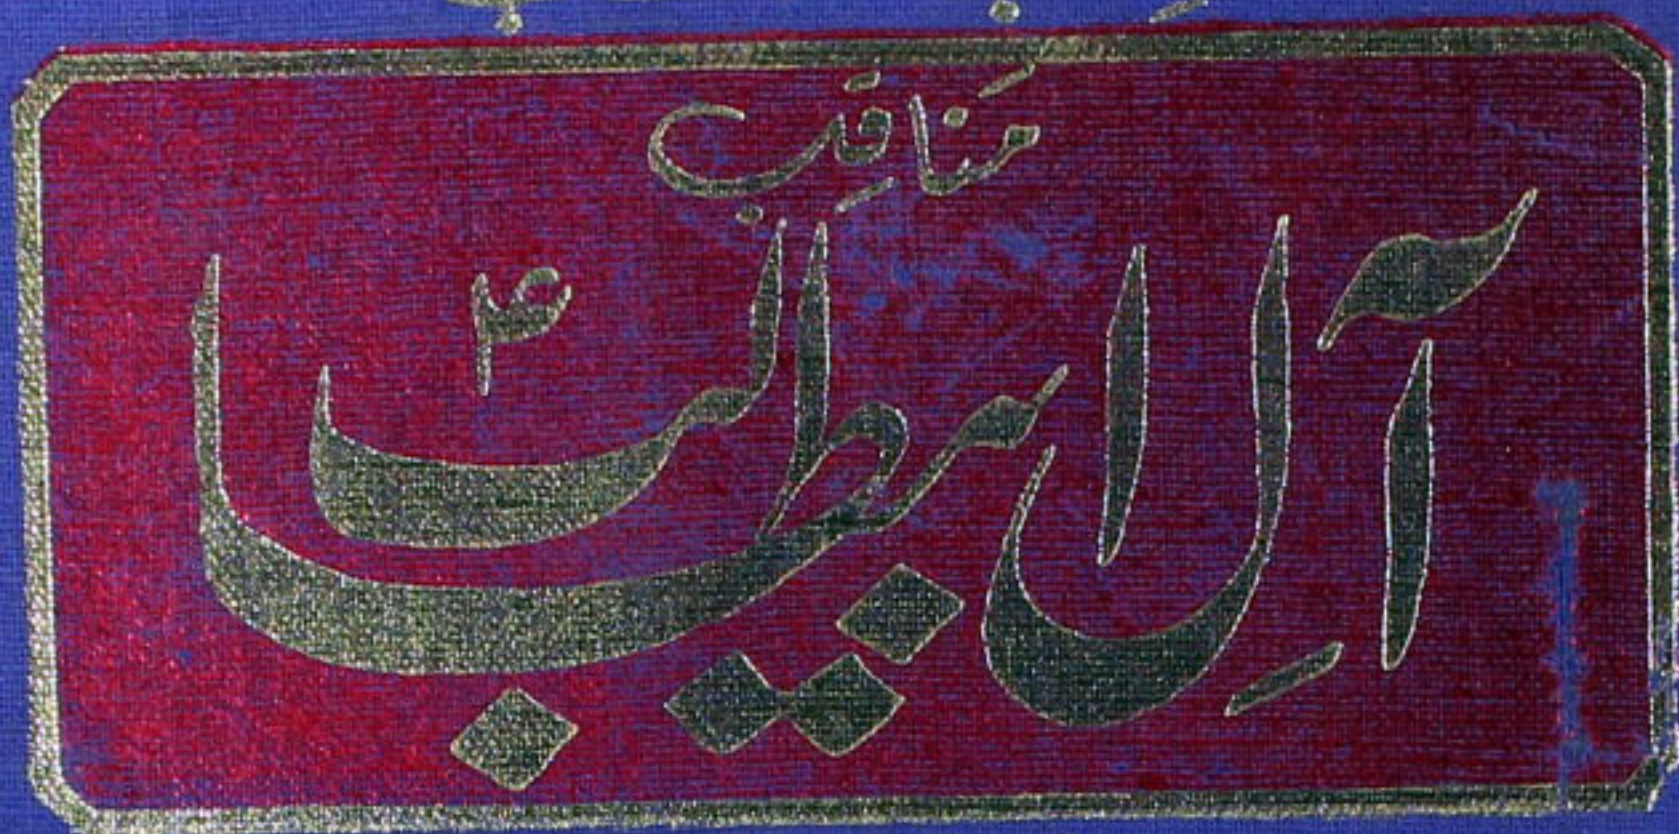 مَناقِب
آلِ ابیطالب ؑ